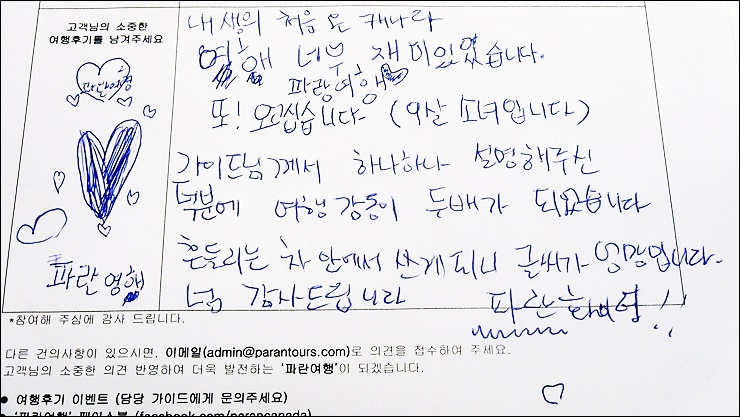 고객님의 소중한
여행후기를 남겨주세요
파란여행
파란여행
내 생의 처음 온 캐나다
여행 너무 재미있었습니다.
파랑여행
또! 오고싶습니다 (9살 소녀입니다)
가이드님께서 하나하나 설명해주신
덕분에 여행 감동이 두배가 되었습니다
흔들리는 차 안에서 쓰게 되니 글씨가 엉망입니다.
넘 감사드립니다
파란 !!
*참여해 주심에 감사 드립니다.
다른 건의사항이 있으시면, 이메일(admin@parantours.com)로 의견을 접수하여 주세요.
고객님의 소중한 의견 반영하여 더욱 발전하는 '파란여행'이 되겠습니다.
● 여행후기 이벤트 (담당 가이드에게 문의주세요)
● '파란여행' 페이스북 (facebook.com/parancanada)